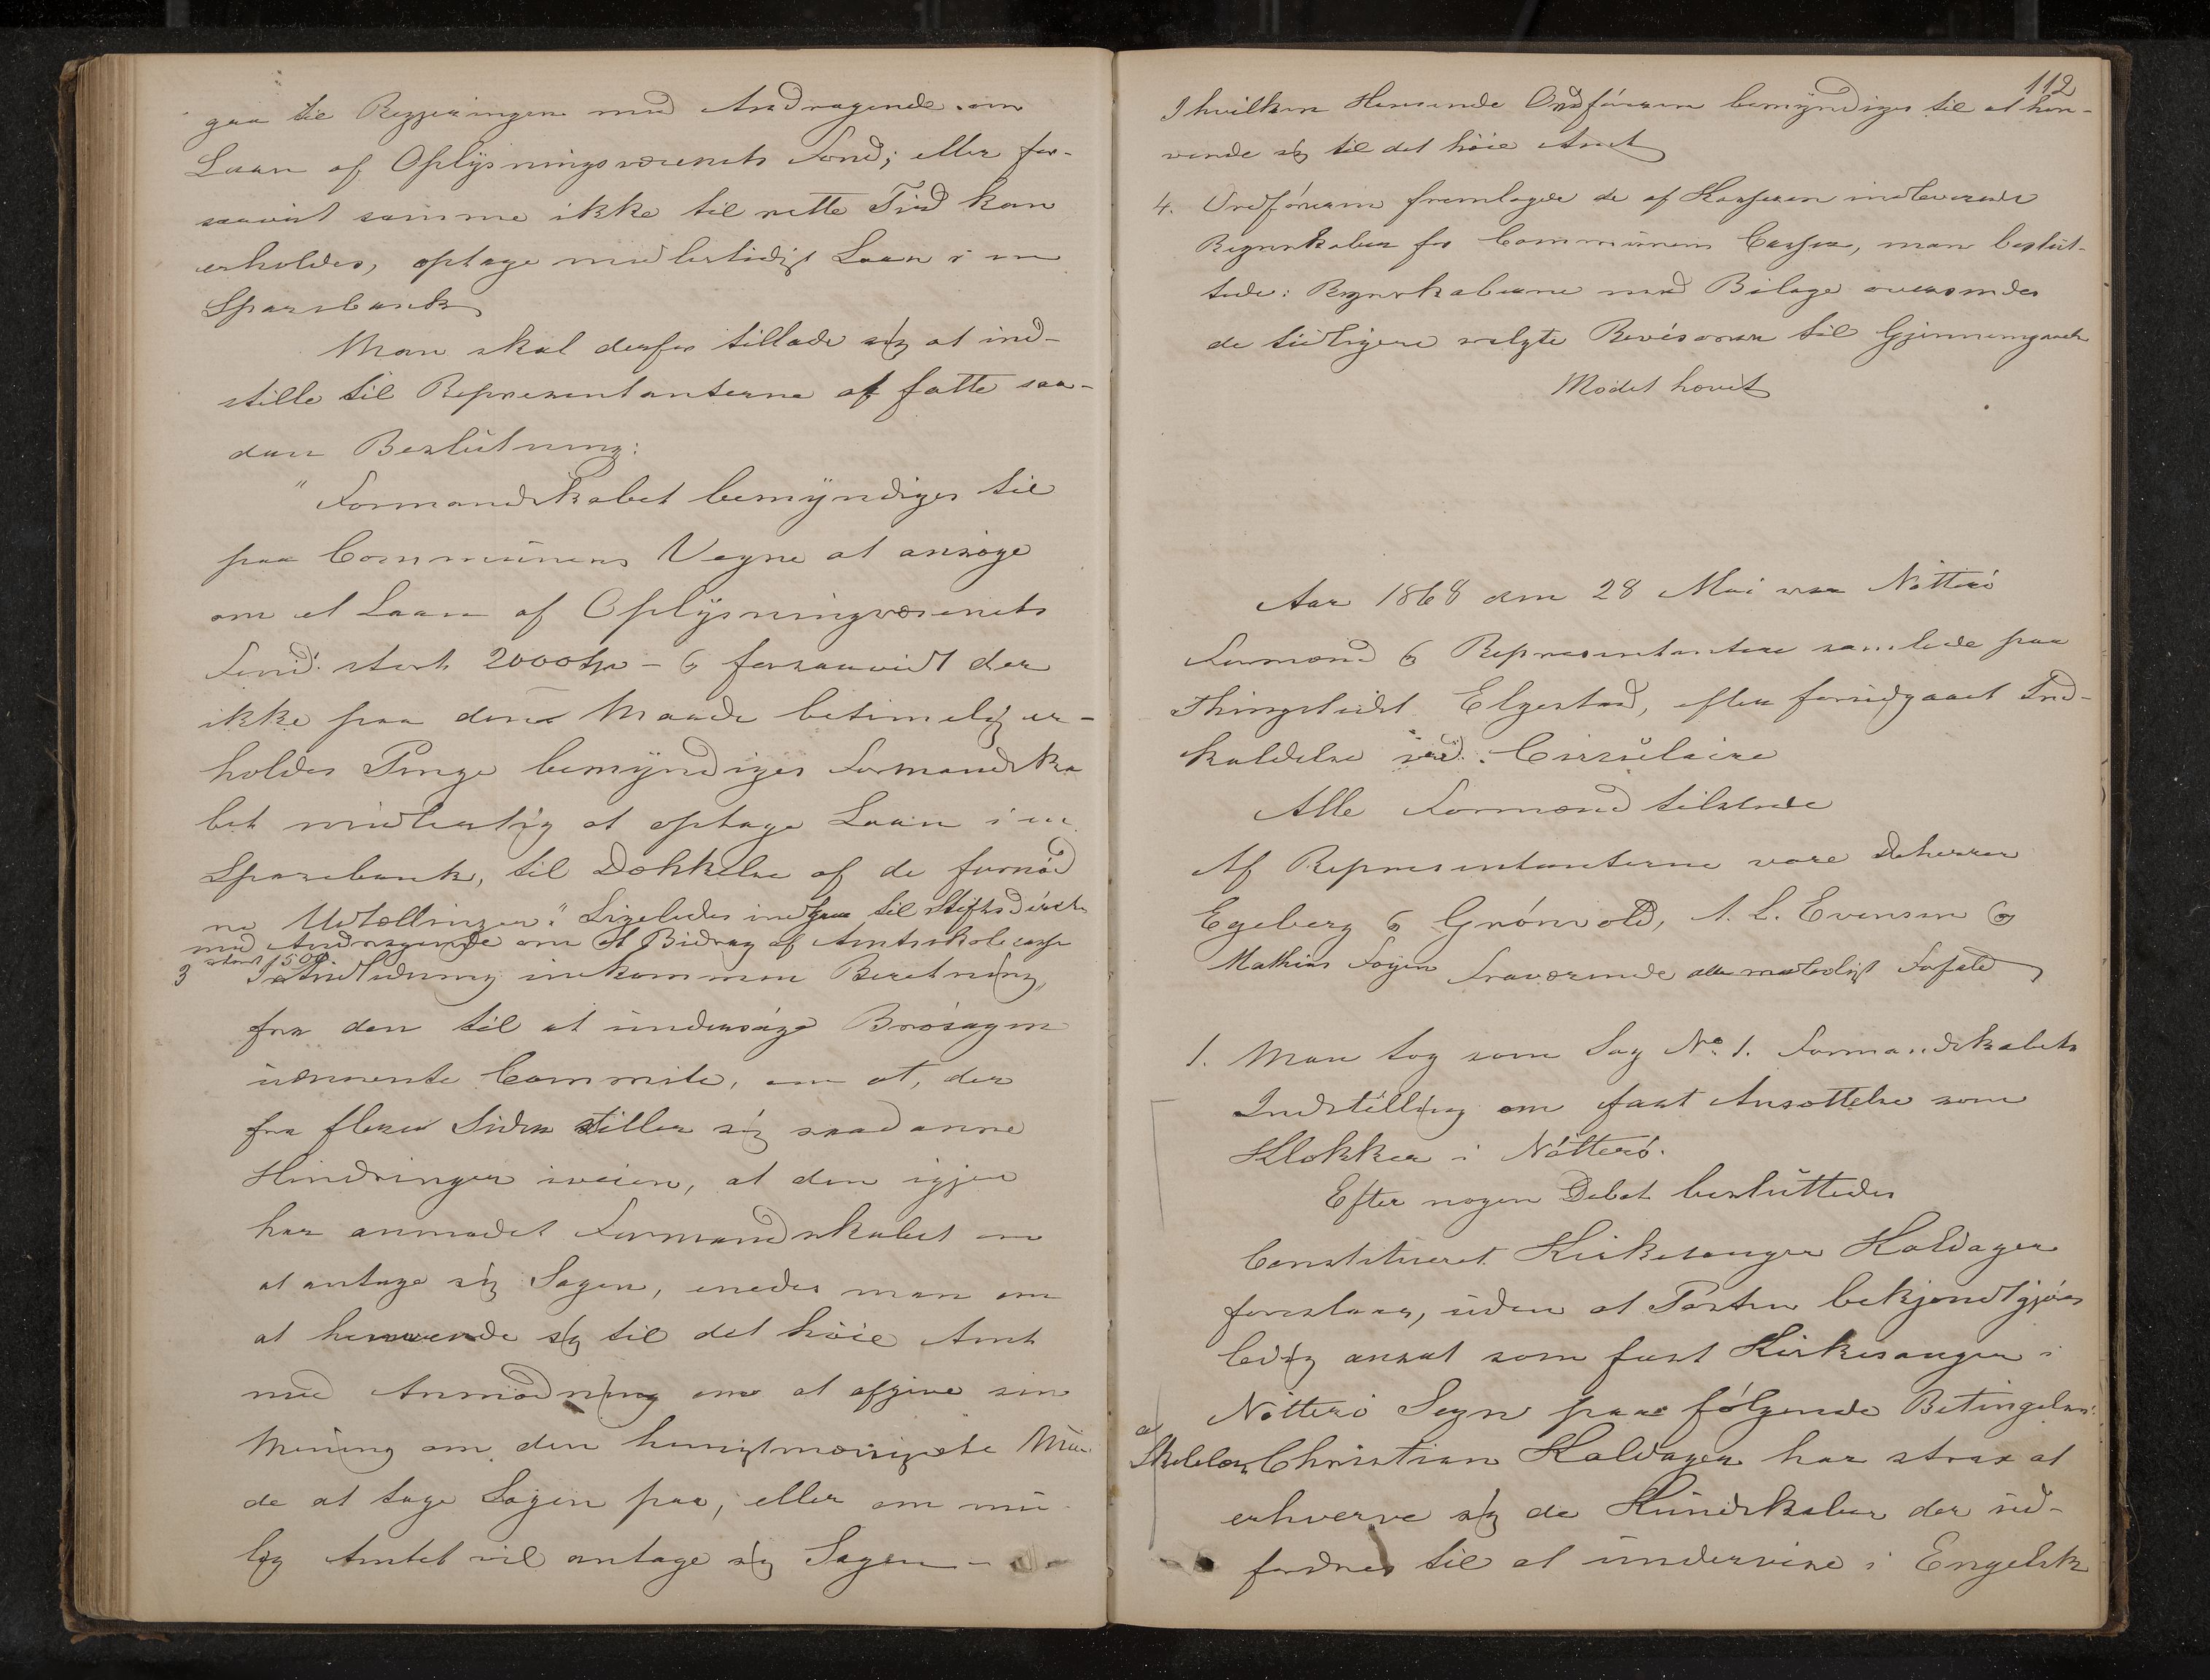 gaa til Regjeringen med Andragende om
Laan af Oplysningsvæsenets Fond; eller for-
saavidt samme ikke til rette Tid kan
erholdes, optage midlertidigt Laan i en
Sparebank
Man skal derfor tillade sig at ind-
stille til Repræsentanterne at fatte saa-
dan Beslutning:
"Formandskabet bemyndiges til
paa Communens Vegne at ansøge
om et Laan af Oplysningvæsenets
Fond stort 2000 Spd – og forsaavidt der
ikke paa denne Maade betimelig er-
holdes Penge bemyndiges Formandska
bet midlertig at optage Laan i en
Sparebank, til Dækkelse af de fornød
ne Udtællinger." Ligeledes indgaa til Stiftsdirect
med Andragende om et Bidrag af Amtsskolecasse
stort 500
3 I Anledning inkommen Beretning,
fra den til at undersøge Brosagen
udnævnte Commite, om at, der
fra flere Sider stiller sig saadanne
Hindringer iveien, at den igjen
har anmodet Formandskabet om
at antage sig Sagen, enedes man om
at henvende sig til det høie Amt
med Anmodning om at afgive sin
Mening om den hensigtmæssigste Maa
de at tage Sagen paa, eller om mu-
lig Amtet vil antage sig Sagen –
112
I hvilken Henseende Ordføreren bemyndiges til at hen-
vende sig til det høie Amt
4. Ordføreren fremlagde de af Kasseren indleverede
Regnskaber for Communens Casser, man beslut-
tede: Regnskaberne med Bilage oversendes
de tidligere valgte Revisorer til Gjennemgaaelse
Mødet hævet
Aar 1868 den 28 Mai var Nøtterø
Formænd og Repræsentantere samlede paa
Thingstedet Elgestad, efter forudgaaet Ind-
kaldelse ved Circulaire
Alle Formænd tilstede
Af Repræsentanterne vare Dherrer
Egeberg og Grønvold, A. L. Evensen og
Mathias Foyen Fraværende alle meldt Forfald
1. Man tog som Sag No. 1. Formandskabets
Indstilling om fast Ansættelse som
Klokker i Nøtterø.
Efter nogen Debat besluttedes
Constitueret Kirkesanger Haldager
foreslaaes, uden at Posten bekjendtgjøres
ledig ansat som fast Kirkesanger i
Nøtterø Sogn paa følgende Betingelser:
a
Christian Haldager har strax at
erhverve sig de Kundskaber der ud-
fordres til at undervise i Engelsk